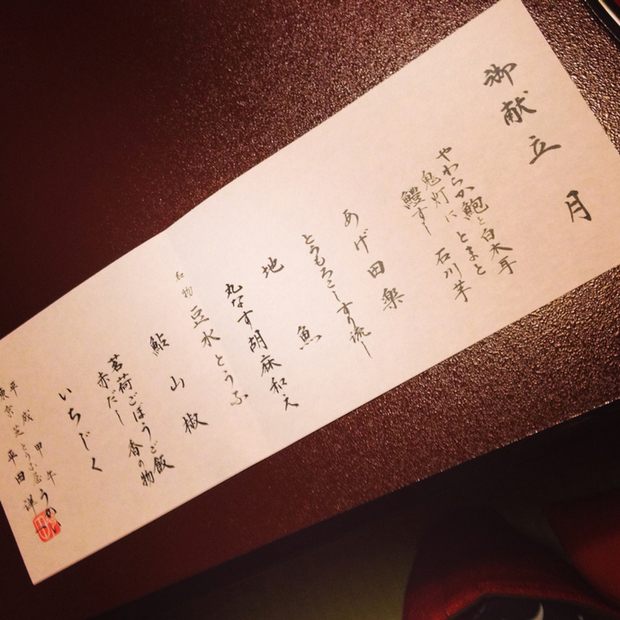 御献立 月
やわらか鮑と白木耳
鬼灯にとまと
鰻すし 石川芋
あげ田楽
とうもろこしすり流し
地魚
丸なす胡麻和え
名物 豆水とうふ
鮎山椒
茗荷ごぼうご飯
赤だし 香の物
いちじく
平成甲午
東京芝とうふ屋うかい
平田